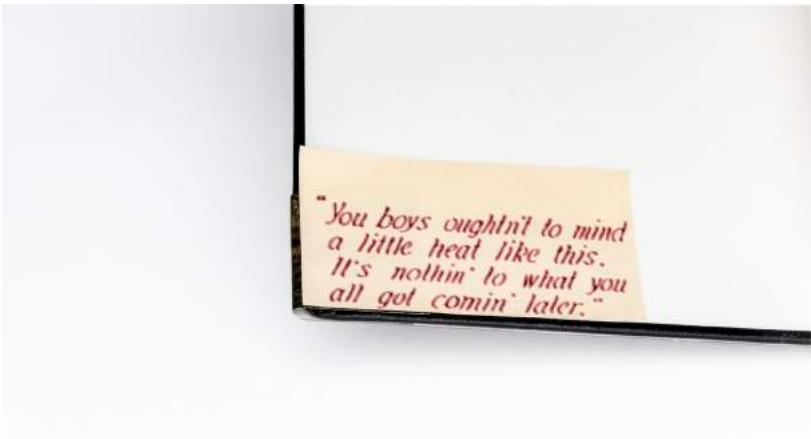 "You boys oughtn't to mind
a little heat like this.
It's nothin' to what you
all got comin' later."